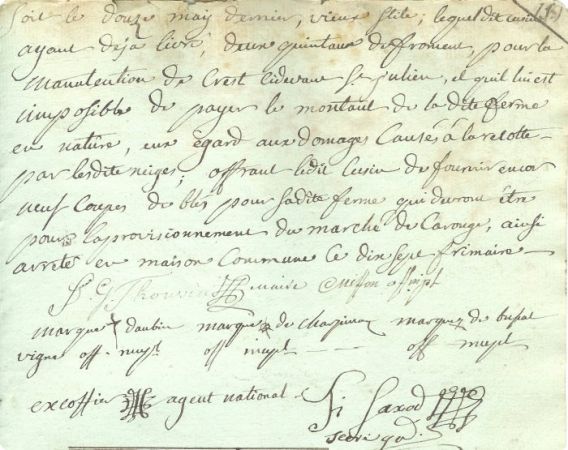 Soit le douze may dernier, vieux stile; lequel dit cusin
ayant déja livré, deux quintaux de froment, pour la
manutention de Crest cidevant St. julien, et quil lui est
imposible de payer le montant de la dite ferme
en nature, eux égard aux domages causé à la recolte
par lesdite neiges; offrant ledit cusin de fournir encor
neuf coupes de bled pour sadite ferme qui devront être
pour laprovisionnement du marché de Carouge, ainsi
arreté en maison Commune le dix sept frimaire
maire off. mupl
marque d'aubin marque de chapinon marque de
vigne off. mupl off mupl off mupl
excoffier agent national. Saxod
secre gd.